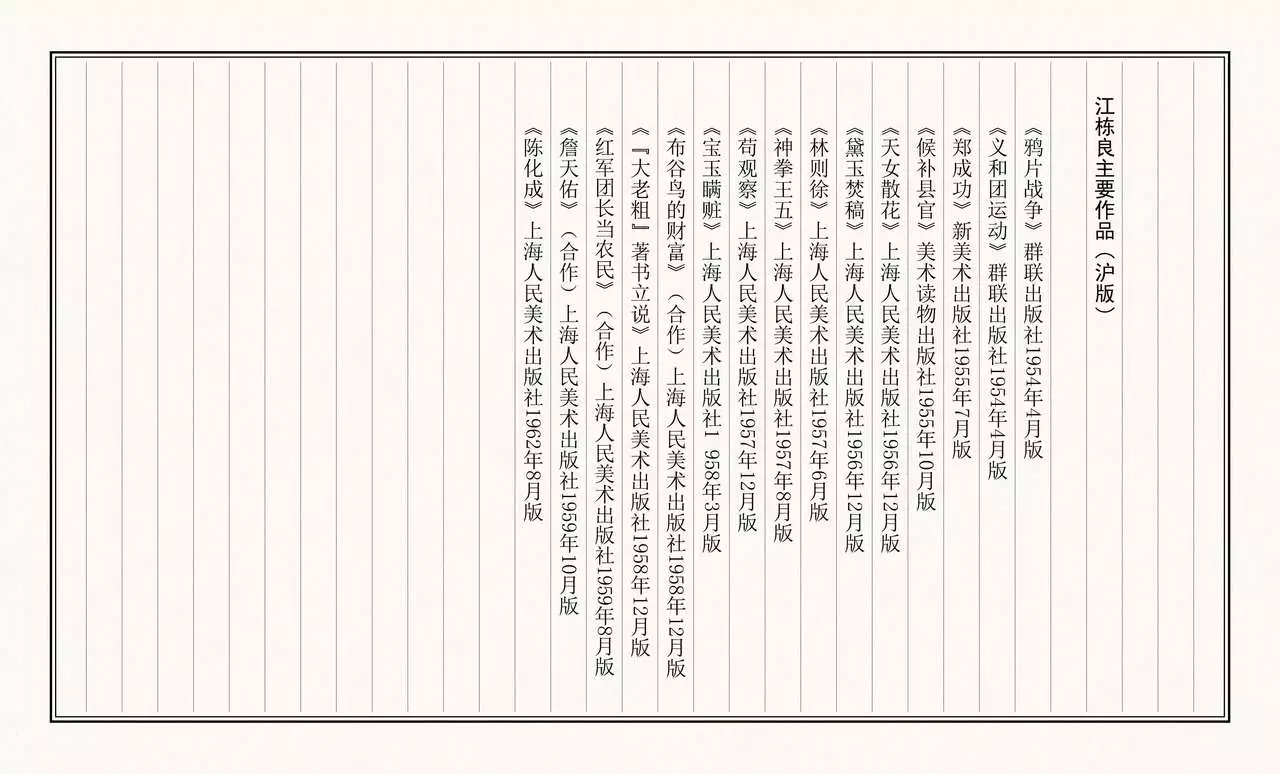 江栋良主要作品（沪版）
《鸦片战争》群联出版社1954年4月版
《义和团运动》群联出版社1954年4月版
《郑成功》新美术出版社1955年7月版
《候补县官》美术读物出版社1955年10月版
《天女散花》上海人民美术出版社1956年12月版
《黛玉焚稿》上海人民美术出版社1956年12月版
《林则徐》上海人民美术出版社1957年6月版
《神拳王五》上海人民美术出版社1957年8月版
《苟观察》上海人民美术出版社1957年12月版
《宝玉瞒赃》上海人民美术出版社1 958年3月版
《布谷鸟的财富》（合作）上海人民美术出版社1958年12月版
《『大老粗』著书立说》上海人民美术出版社1958年12月版
《红军团长当农民》（合作）上海人民美术出版社1959年8月版
《詹天佑》（合作）上海人民美术出版社1959年10月版
《陈化成》上海人民美术出版社1962年8月版